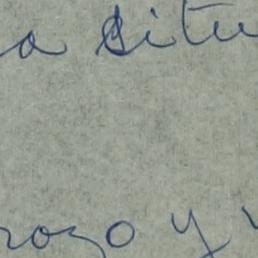 a situ
rozo y